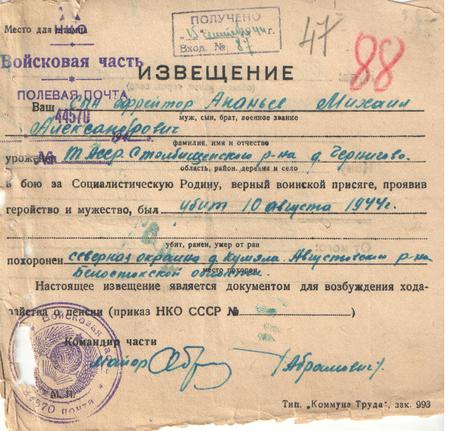 Место для
НКО
Войсковая часть
ПОЛЕВАЯ ПОЧТА
44570
ПОЛУЧЕНО
Вход. № 87
47
88
ИЗВЕЩЕНИЕ
Ваш сын ефрейтор Ананьев Михаил
муж, сын, брат, военное звание
Александрович
фамилия, имя и отчество
урожен ТАССР. Столбищенского р-на д. Чернигово
область, район, деревня и село
в бою за Социалистическую Родину, верный воинской присяге, проявив
геройство и мужество, был убит 10 августа 1944 г.
убит, ранен, умер от ран
похоронен северная окраина д. Августовский р-на
Белостокской области.
место похорон
Настоящее извещение является документом для возбуждения хода-
тайства о пенсии (приказ НКО СССР № )
Командир части
майор (Абрамович)
Войсковая часть
М. П.
44570 почта
Тип. „Коммуна Труда", зак. 993